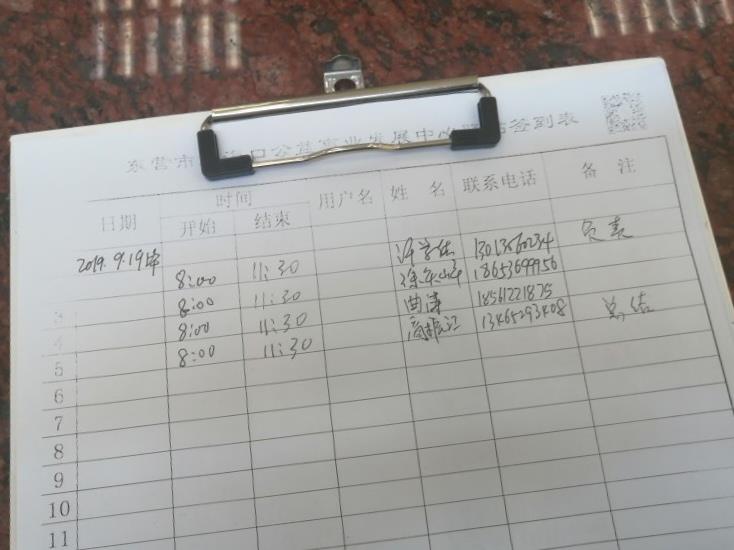 东营市 口公益事业发展中心 签到表
日期 时间 用户名 姓 名 联系电话 备 注
开始 结束
2019.9.19 8:00 11:30 13013560234 负责
3 8:00 11:30 18653699956
4 8:00 11:30 曲涛 18561221875
5 8:00 11:30 13465293408 总结
6
7
8
9
10
11